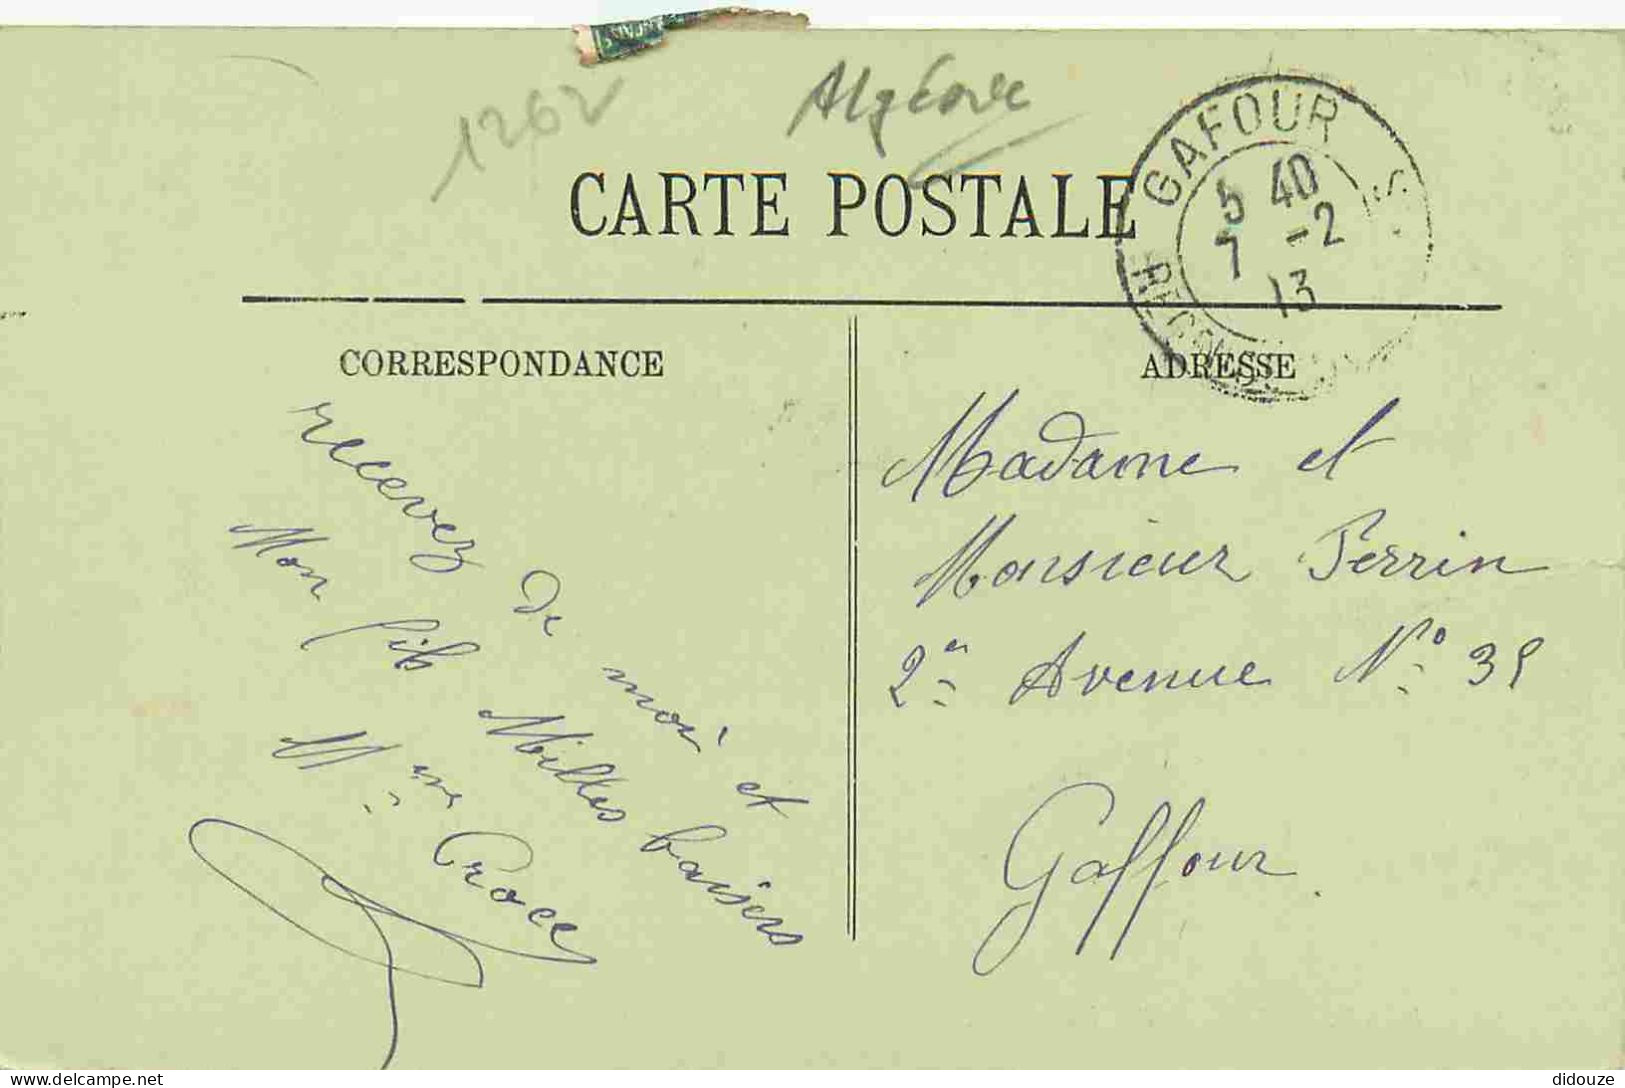 1262
Algérie
CARTE POSTALE
GAFOUR S.
5 40
7 -2
13
CORRESPONDANCE
ADRESSE
recevez de moi et
Mon fils Milles baisers
Mme
Madame et
Monsieur Perrin
2e Avenue No 39
Gaffour
didouze